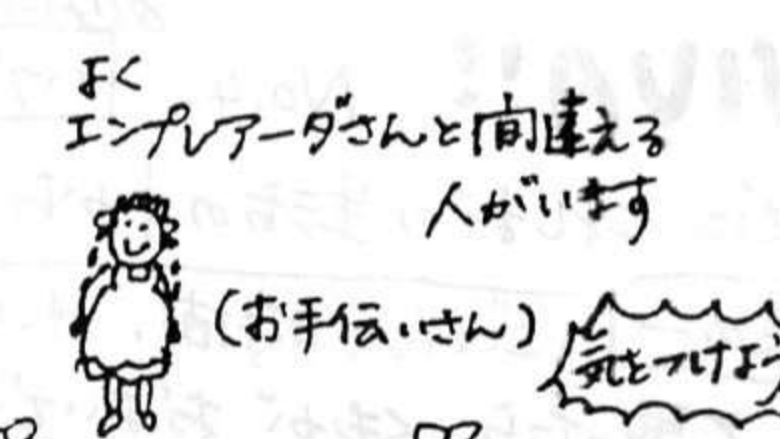 よく
エンプレアーダさんと間違える
人がいます
(お手伝いさん)
気をつけよう